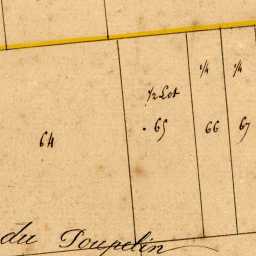 ¼ ¼
½ Lot
64 65 66 67
du Poupelin